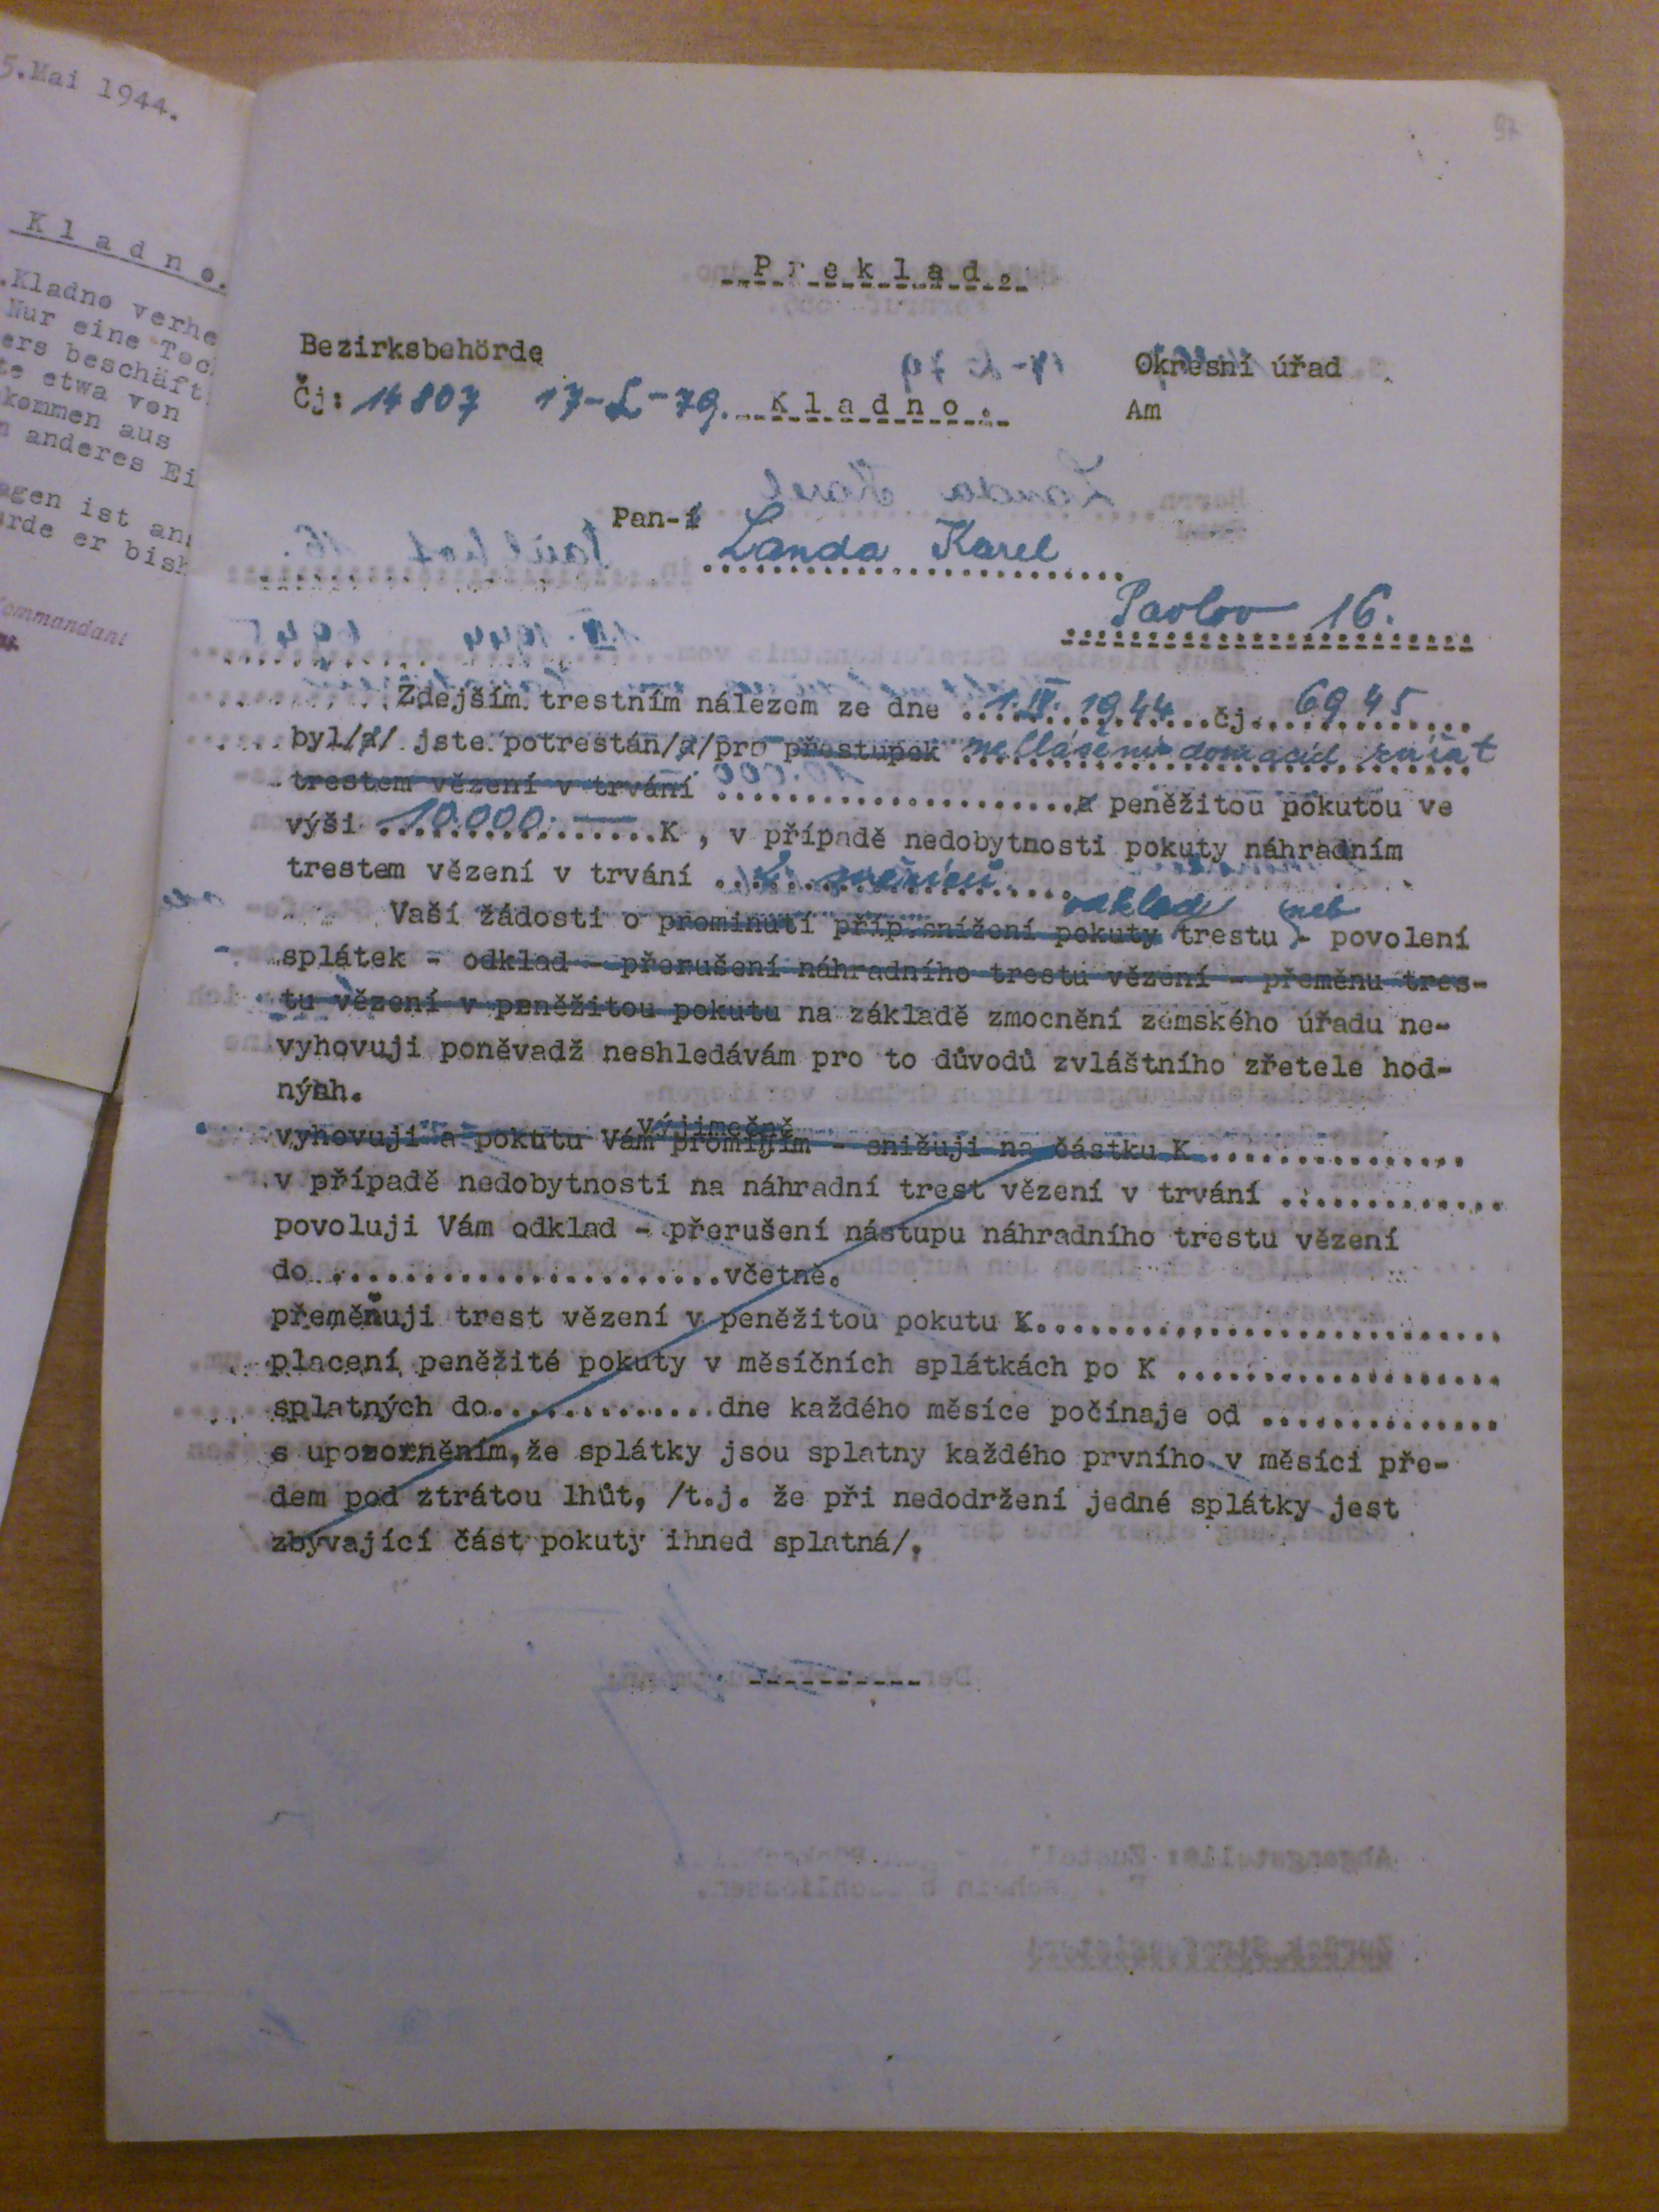 5.Mai 1944.
K l a d n o.
.Kladno verhe
Nur eine Toc
ers beschäft
te etwa von
kommen aus
n anderes Ei
agen ist an
rde er bish
Kommandant
97
P r e k l a d .
Bezirksbehörde Okresní úřad
Čj: 14807 17-L-79. K l a d n o . Am
Pan-í Landa Karel
Pavlov 16.
Zdejším trestním nálezem ze dne 1.IV.1944 čj. 6945
byl/a/ jste potrestán/a/pro přestupek domácíd zvířat
trestem vězení v trvání ....................a peněžitou pokutou ve
výši 10.000.— K , v případě nedobytnosti pokuty náhradním
trestem vězení v trvání 2 měsíců
odklad neb
Vaší žádosti o prominutí příp.snížení pokuty trestu - povolení
splátek - odklad - přerušení náhradního trestu vězení - přeměnu tres-
tu vězení v peněžitou pokutu na základě zmocnění zemského úřadu ne-
vyhovuji poněvadž neshledávám pro to důvodů zvláštního zřetele hod-
ných.
výjimečně
vyhovuji a pokutu Vám promíjím - snižuji na částku K ................
v případě nedobytnosti na náhradní trest vězení v trvání .............
povoluji Vám odklad - přerušení nástupu náhradního trestu vězení
do......................včetně.
přeměňuji trest vězení v peněžitou pokutu K...........................
placení peněžité pokuty v měsíčních splátkách po K ...................
splatných do.............dne každého měsíce počínaje od ..............
s upozorněním,že splátky jsou splatny každého prvního v měsíci pře-
dem pod ztrátou lhůt, /t.j. že při nedodržení jedné splátky jest
zbývající část pokuty ihned splatná/.
----------